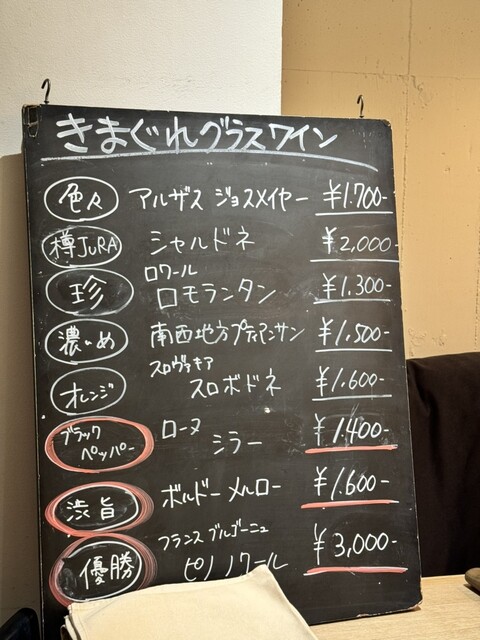 きまぐれグラスワイン
色々 アルザス ジョスメイヤー ¥1.700-
樽JURA シャルドネ ¥2,000-
珍 ロワール ロモランタン ¥1.300-
濃いめ 南西地方プティマンサン ¥1.500-
オレンジ スロヴァキア スロボドネ ¥1.600-
ブラック
ペッパー ローヌ シラー ¥1.400-
渋旨 ボルドー メルロー ¥1.600-
優勝 フランス ブルゴーニュ
ピノ ノワール ¥3,000-